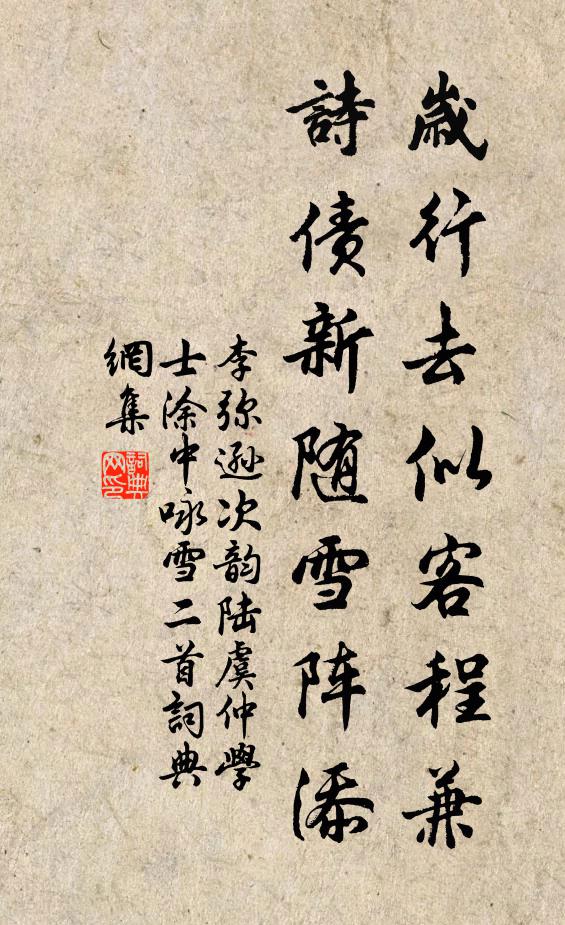 歲行去似客程兼
詩债新随雪阵添
李弥遜次韵陆虞仲學
士涂中咏雪二首詞典
網集
詞典网印